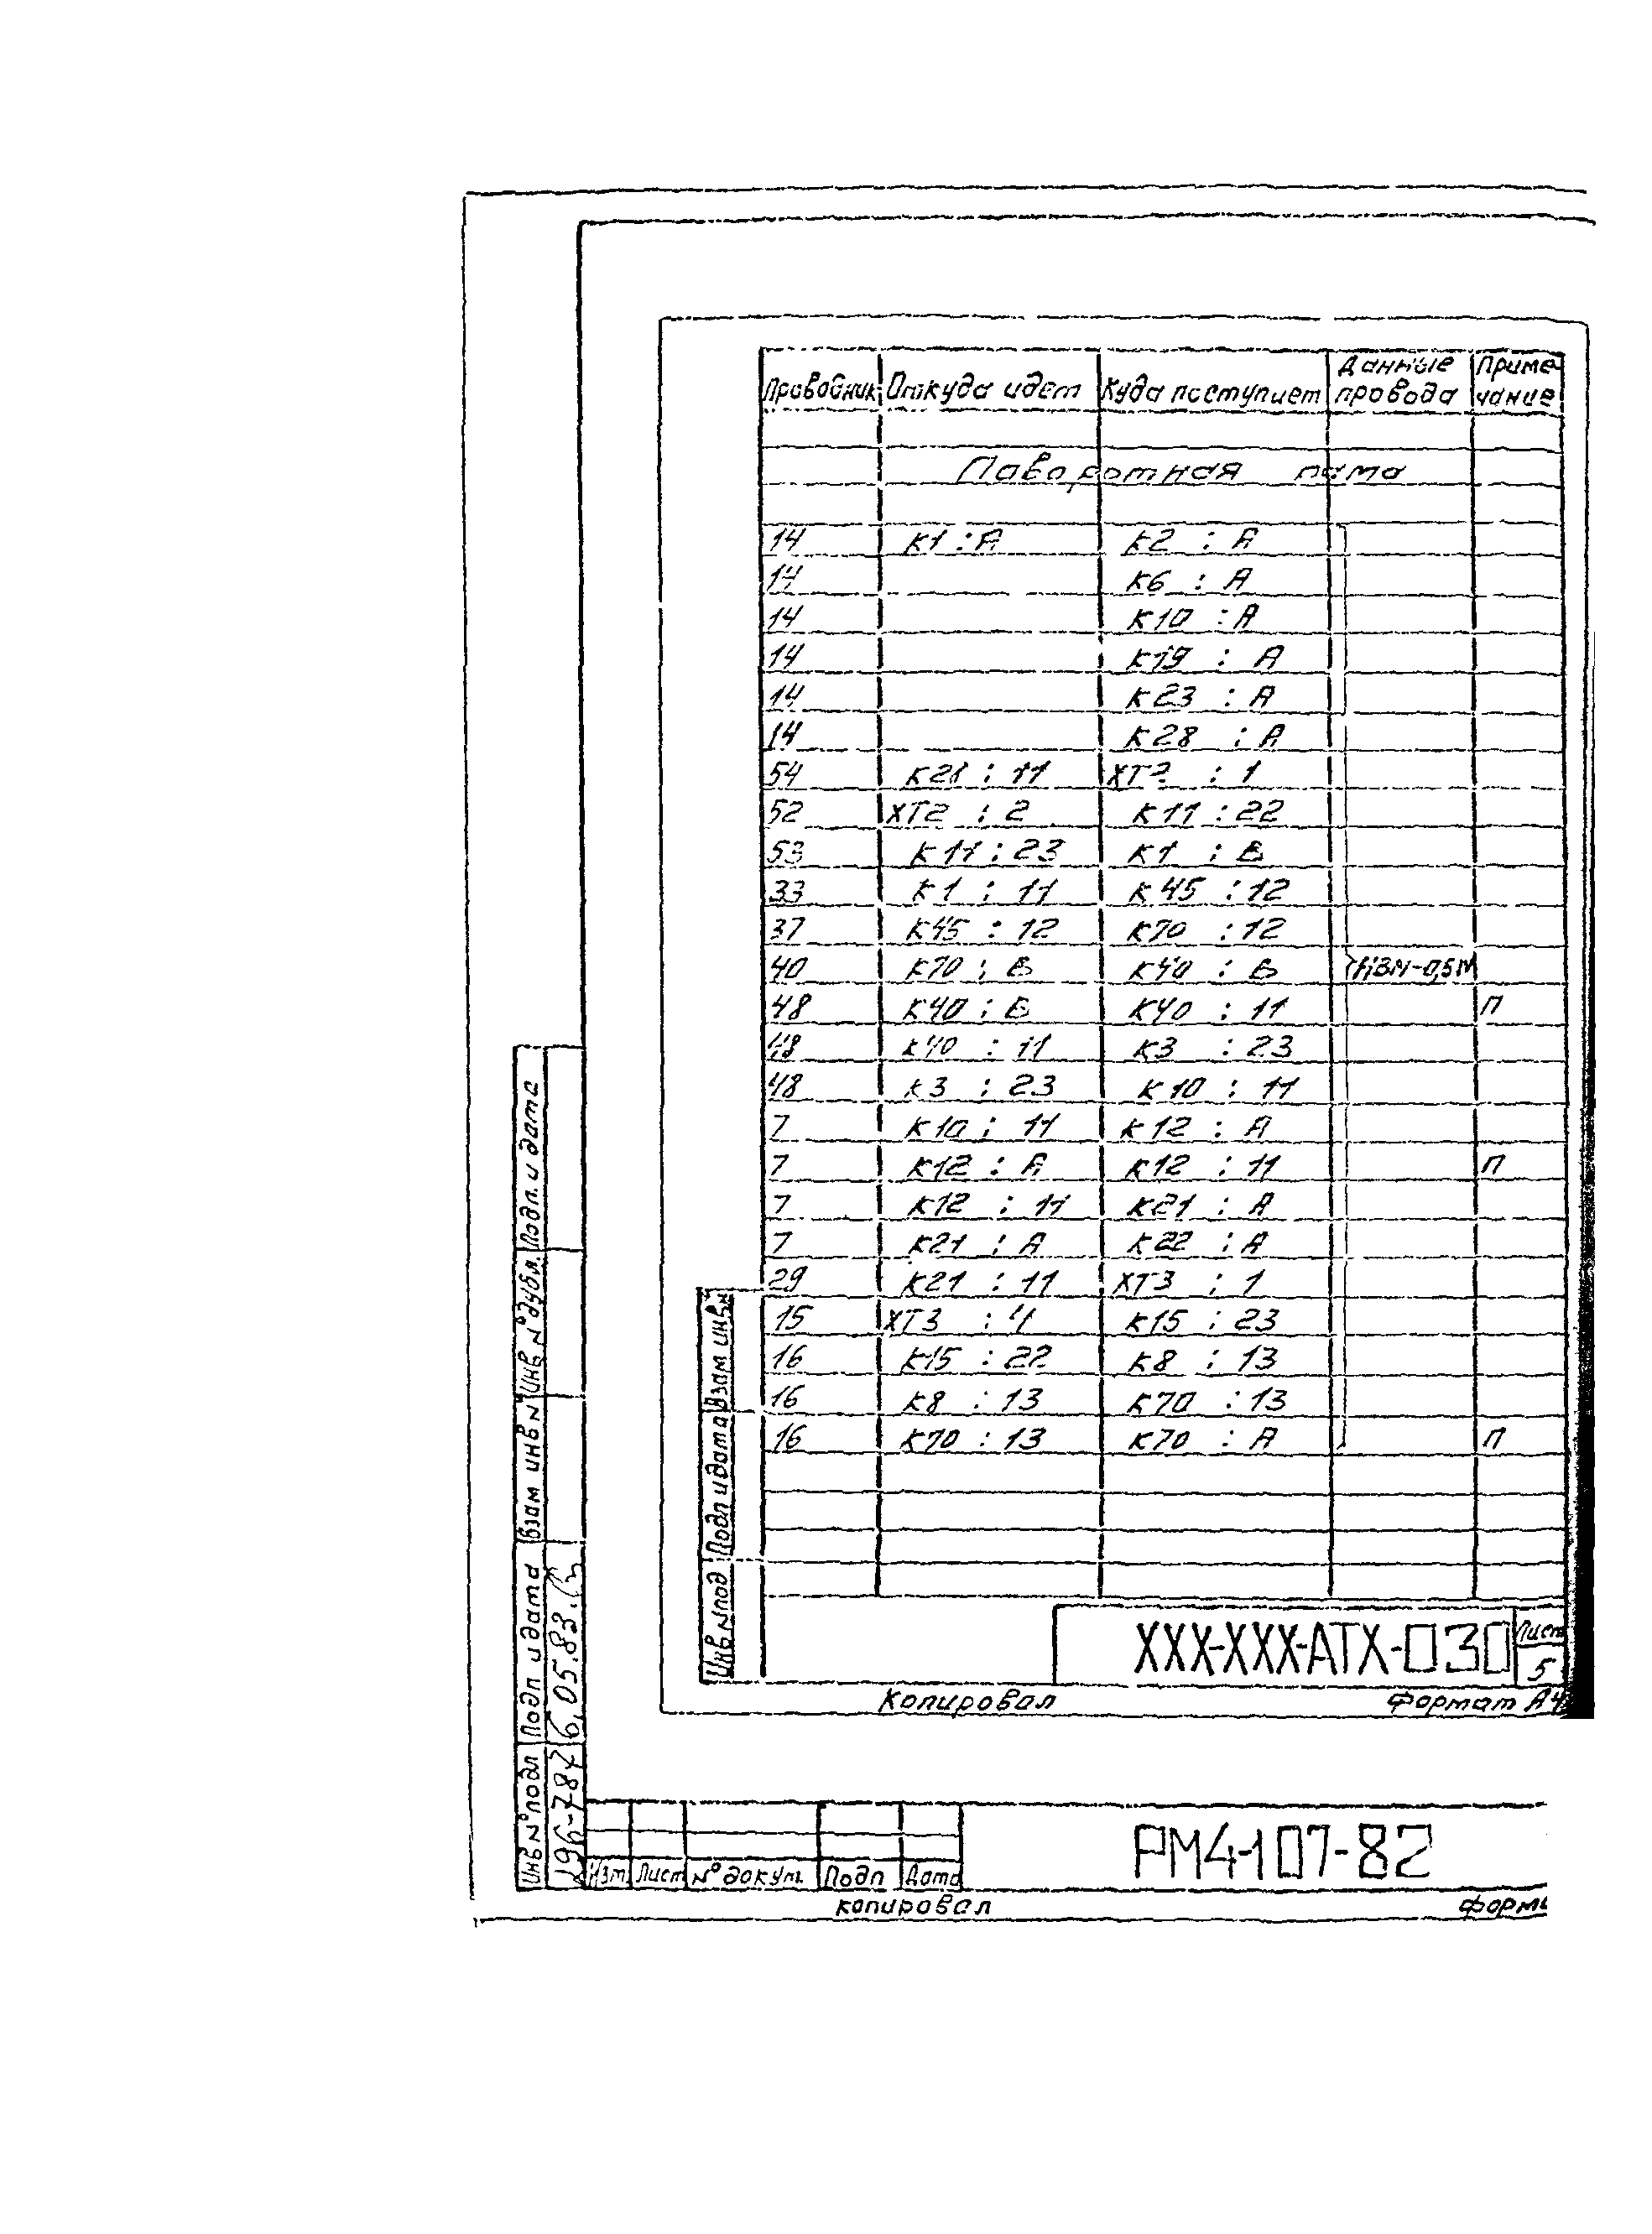 Проводник Откуда идет Куда поступает Данные провода Примечание
Поворотная рама
14 К1 : А К2 : А
14 К6 : А
14 К10 : А
14 К19 : А
14 К23 : А
14 К28 : А
54 К21 : 11 ХТ2 : 1
52 ХТ2 : 2 К11 : 22
53 К11 : 23 К1 : Б
33 К1 : 11 К45 : 12
37 К45 : 12 К70 : 12
40 К70 : Б К40 : Б НВМ-0,5М
48 К40 : Б К40 : 11 П
48 К40 : 11 К3 : 23
48 К3 : 23 К10 : 11
7 К10 : 11 К12 : А
7 К12 : А К12 : 11 П
7 К12 : 11 К21 : А
7 К21 : А К22 : А
29 К21 : 11 ХТ3 : 1
15 ХТ3 : 4 К15 : 23
16 К15 : 22 К8 : 13
16 К8 : 13 К70 : 13
16 К70 : 13 К70 : А П
Инв № под Подп и дата Взам инв №
ХХХ-ХХХ-АТХ-030 Лист 5
Копировал Формат А4
Инв № подл Подп и дата Взам инв № Инв № дубл. Подп. и дата
6.05.83.
Изм. Лист № докум. Подп Дата
РМ4-107-82
копировал